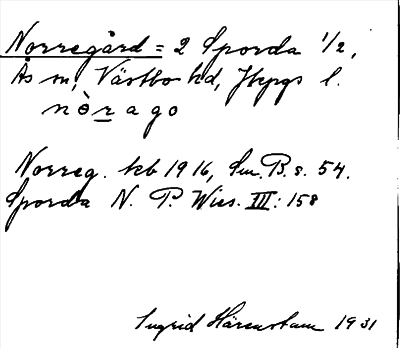 Norregård = 2 Sporda 1/2,
Ås sn, Västbo hd, Jkpgs l.
nò̀rago
Norreg. kb 1916, Sm. B. s. 54.
Sporda N. P. Wies. III: 158
Ingrid Härenstam 1931